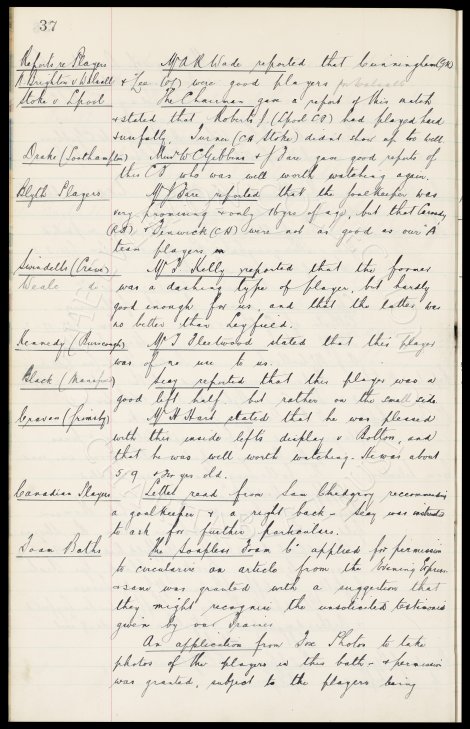 37
Reports re Players Mr A R Wade reported that Cunningham (GK)
N. Brighton v Walsall & Lea (OL) were good players for Walsall
Stoke v L'pool The Chairman gave a report of this match
& stated that Roberts J. (L'pool CF) had played hard
& usefully. Turner (CH Stoke) didnt show up too well.
Drake (Southampton) Messrs W C Gibbins & J Fare gave good reports of
this CF who was well worth watching again.
Blyth Players Mr J Fare reported that the goalkeeper was
very promising & only 16 yrs of age, but that
(RB) & Fenwick (CH) were not as good as our 'A'
team players
Swindells (Crewe) Mr T. Kelly reported that the former
Weale do was a dashing type of player, but hardly
good enough for us, and that the latter was
no better than Leyfield.
Kennedy (Burscough) Mr J Fleetwood stated that this player
was of no use to us.
Black (Mansfield) Secy reported that this player was a
good left half, but rather on the small side.
Craven (Grimsby) Mr H Hard stated that he was pleased
with this inside left's display v Bolton, and
that he was well worth watching. He was about
5/9 & 20 yrs old.
Canadian Players Letter read from Sam Chedgzoy recommending
a goalkeeper & a right back - Secy was instructed
to ask for further particulars.
Foam Baths The Soapless Foam Co applied for permission
to circularise an article from the Evening Express
& same was granted with a suggestion that
they might recognise the unsolicited testimonial
given by our Trainer
An application from Fox Photos to take
photos of the players in this bath - & permission
was granted, subject to the players being